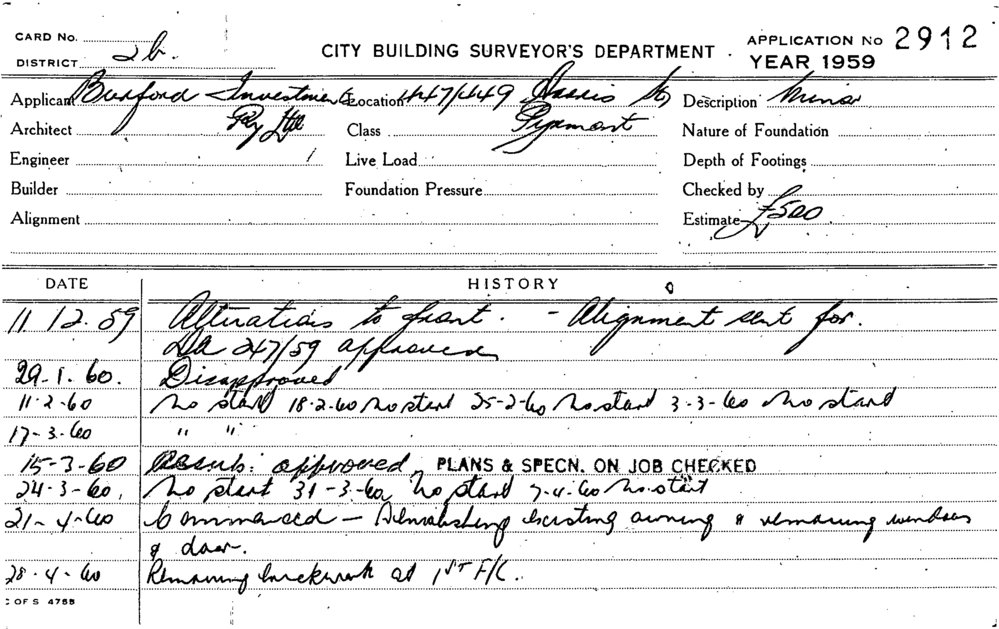 CARD No.
DISTRICT 2b.
CITY BUILDING SURVEYOR'S DEPARTMENT.
APPLICATION No 2912
YEAR 1959
Applicant Burford Investments Location 447/449 Harris St, Description Minor
Architect Pty Ltd Class Pyrmont Nature of Foundation
Engineer Live Load Depth of Footings
Builder Foundation Pressure Checked by
Alignment Estimate £500.
DATE HISTORY
11/12.59 Alterations to front. - Alignment sent for.
DA 247/59 approved
29.1.60. Disapproved
11-2-60 No start 18-2-60 No start 25-2-60 No start 3-3-60 No start
17-3-60 " "
15-3-60 Resub: approved PLANS & SPECN. ON JOB CHECKED
24-3-60. No start 31-3-60 No start 7-4-60 No start
21-4-60 Commenced - Demolishing existing awning & removing windows
& door.
28-4-60 Removing brickwork at 1ST F/C.
C OF S 475B